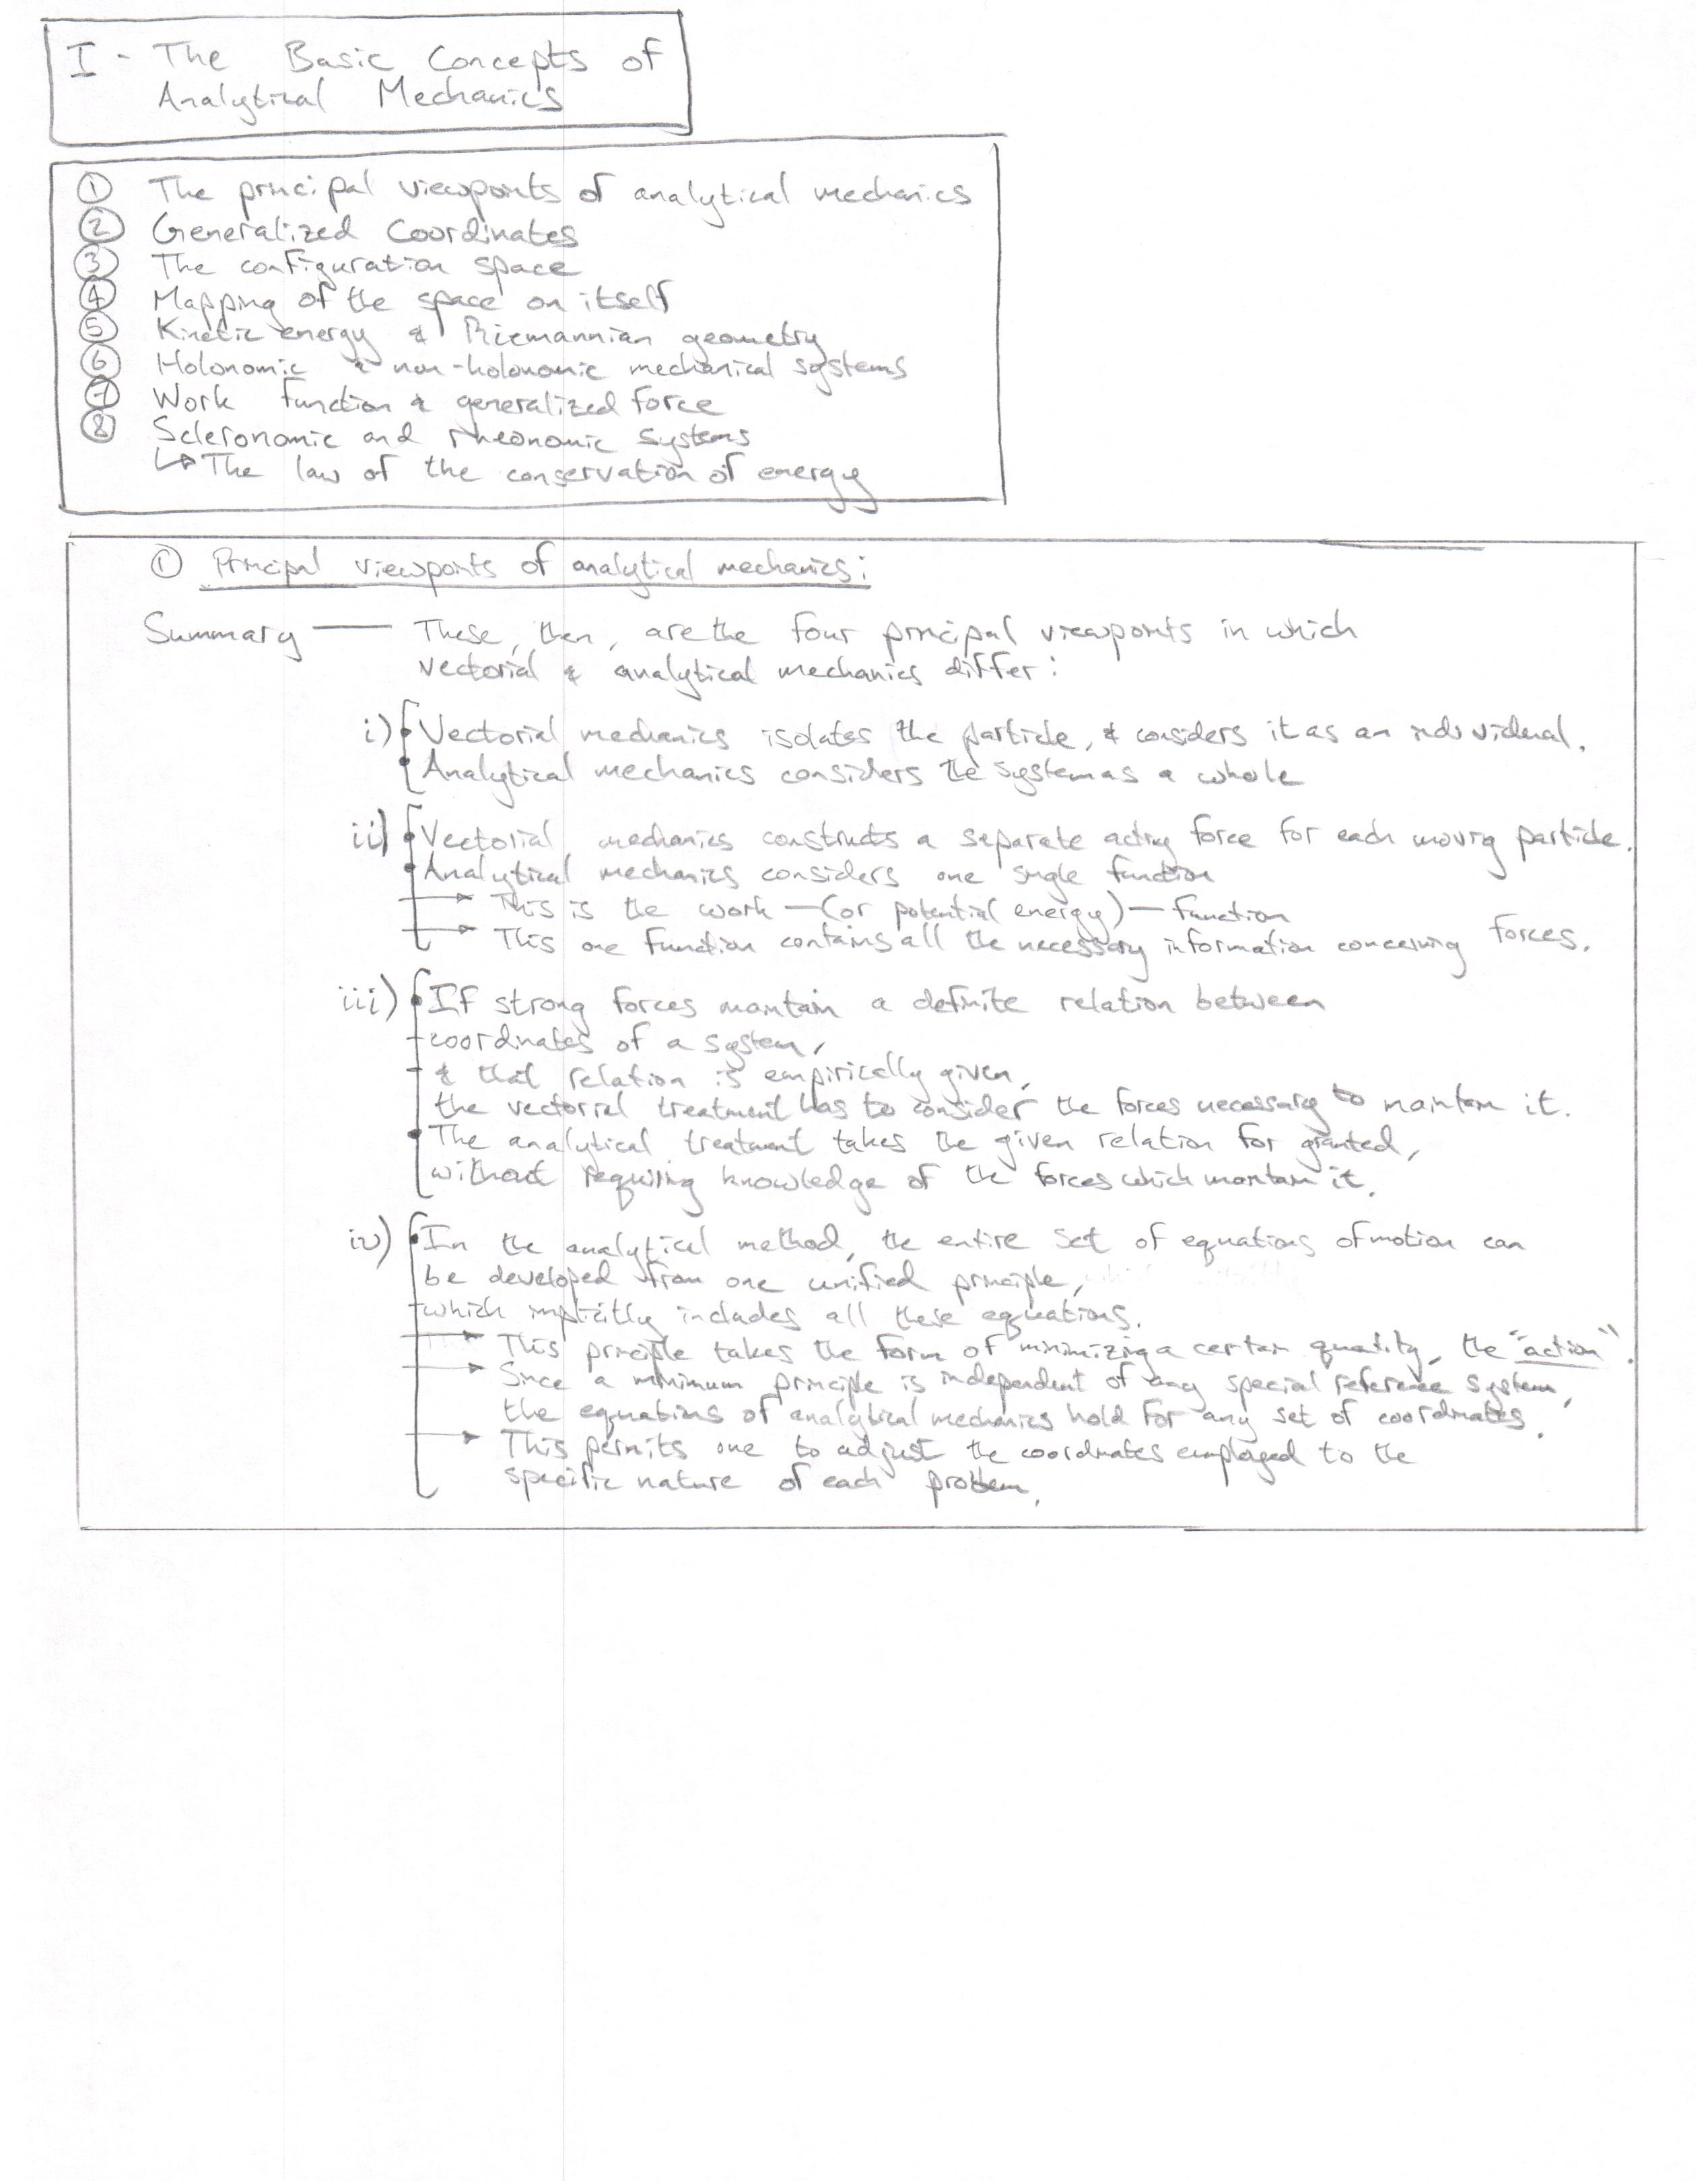 I - The Basic Concepts of
Analytical Mechanics
① The principal viewpoints of analytical mechanics
② Generalized Coordinates
③ The configuration space
④ Mapping of the space on itself
⑤ Kinetic energy & Riemannian geometry
⑥ Holonomic & non-holonomic mechanical systems
⑦ Work function & generalized force
⑧ Scleronomic and rheonomic systems
↳ The law of the conservation of energy
① Principal viewpoints of analytical mechanics:
Summary — These, then, are the four principal viewpoints in which
vectorial & analytical mechanics differ:
i) • Vectorial mechanics isolates the particle, & considers it as an individual.
• Analytical mechanics considers the system as a whole
ii) • Vectorial mechanics constructs a separate acting force for each moving particle.
• Analytical mechanics considers one single function
→ This is the work — (or potential energy) — function
→ This one function contains all the necessary information concerning forces.
iii) • If strong forces maintain a definite relation between
coordinates of a system,
& that relation is empirically given,
the vectorial treatment has to consider the forces necessary to maintain it.
• The analytical treatment takes the given relation for granted,
without requiring knowledge of the forces which maintain it.
iv) • In the analytical method, the entire set of equations of motion can
be developed from one unified principle,
which implicitly includes all these equations.
→ This principle takes the form of minimizing a certain quantity, the "action".
→ Since a minimum principle is independent of any special reference system,
the equations of analytical mechanics hold for any set of coordinates.
→ This permits one to adjust the coordinates employed to the
specific nature of each problem.